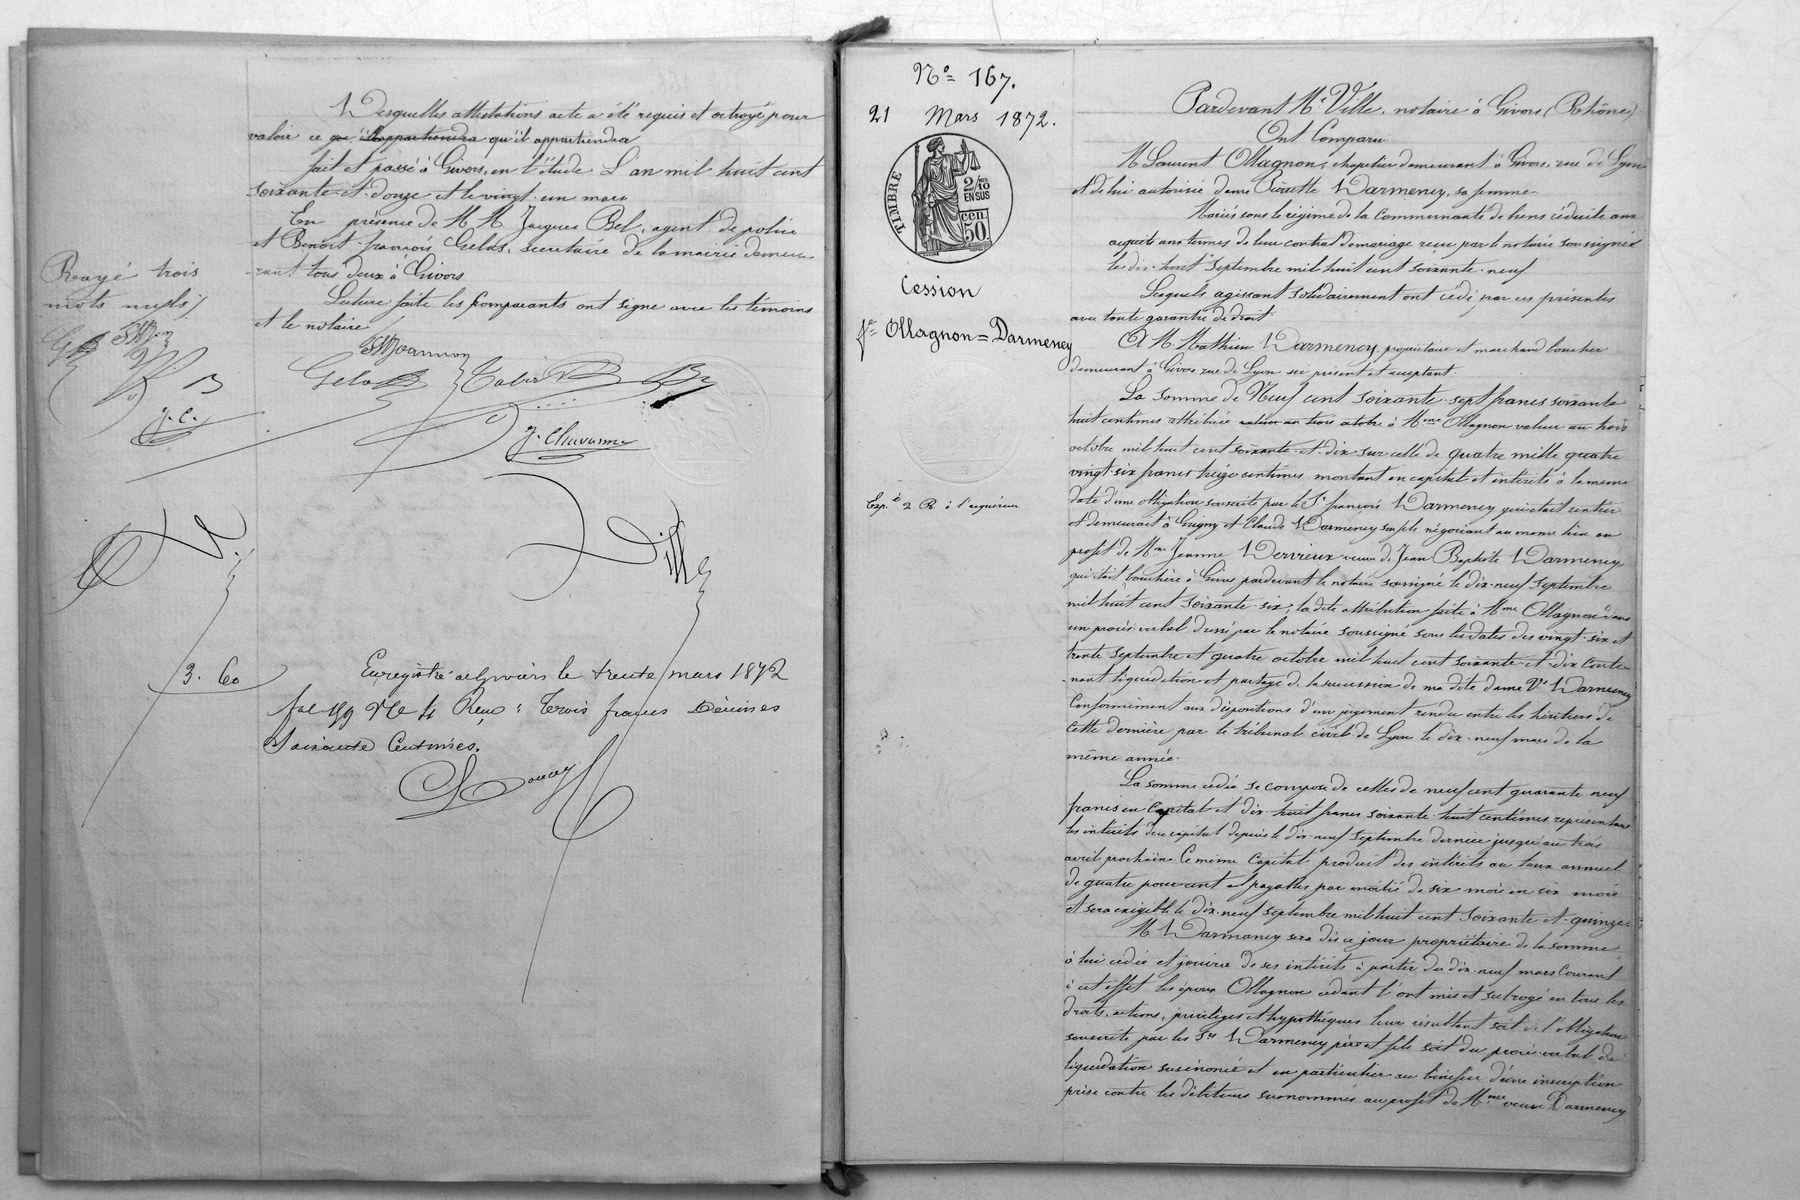 Desquelles attestations acte a été requis et octroyé pour
valoir ce que il appartiendra qu'il appartiendra
fait et passé à Givors, en l'étude L'an mil huit cent
soixante-et-douze et le vingt-un mars
En présence de M.M. Jacques Bel, agent de police
et Benoit-françois Gelas, secrétaire de la mairie demeu-
-rant tous deux à Givors
Lecture faite les Comparants ont signé avec les témoins
et le notaire
Rayé trois
mots nuls
B
J. C.
Gelas
J. Chavanne
Ville
3. 60
Enregistré à Givors le trente mars 1872
fol 199 Reçu : Trois francs Décimes
Soixante Centimes.
N° 167.
21 Mars 1872.
TIMBRE
2/10 EN SUS
50 cen.
Cession
Ollagnon = Darmency
Exp. 2 R. à l'acquéreur
Pardevant Me Ville, notaire à Givors (Rhône)
Ont Comparu
M. Laurent Ollagnon, chapelier demeurant à Givors, rue de Lyon
et de lui autorisée dame Pierrette Darmency, sa femme
Mariés sous le régime de la Communauté de biens réduite aux
acquêts aux termes de leur contrat de mariage reçu par le notaire soussigné
le dix-huit septembre mil huit cent soixante-neuf
Lesquels agissant solidairement ont cédé par ces présentes
avec toute garantie de droit
A M. Mathieu Darmency, propriétaire et marchand boucher
demeurant à Givors rue de Lyon ici présent et acceptant.
La somme de Neuf cent soixante-sept francs soixante
huit centimes attribuée valeur au trois octobre à Mme Ollagnon valeur au trois
octobre mil huit cent soixante-et-dix sur celle de quatre mille quatre
vingt-six francs treize centimes, montant en capital et intérêts à la même
date d'une obligation souscrite par le Sr françois Darmency qui était rentier
et demeurait à Grigny et Claude Darmency son fils négociant au même lieu au
profit de Mme Jeanne Dervieux veuve de Jean Baptiste Darmency
qui était bouchère à Givors pardevant le notaire soussigné le dix-neuf septembre
mil huit cent soixante-six, la dite attribution faite à Mme Ollagnon dans
un procès-verbal dressé par le notaire soussigné sous les dates des vingt-six et
trente septembre et quatre octobre mil huit cent soixante-et-dix Conte-
-nant liquidation et partage de la succession de ma dite dame Ve Darmency
Conformément aux dispositions d'un jugement rendu entre les héritiers de
Cette dernière par le tribunal civil de Lyon le dix-neuf mars de la
même année.
La somme cédée se compose de celles de neuf cent quarante neuf
francs en Capital et dix-huit francs soixante-huit centimes représentant
les intérêts de ce capital depuis le dix-neuf septembre dernier jusqu'au trois
avril prochain. Ce même Capital produit des intérêts au taux annuel
de quatre pour cent et payables par moitié de six mois en six mois
et sera exigible le dix-neuf septembre mil huit cent soixante-et-quinze.
M. Darmancy sera dès ce jour propriétaire de la somme
à lui cédée et jouira de ses intérêts à partir du dix-neuf mars Courant
à cet effet les époux Ollagnon cédant l'ont mis et subrogé en tous les
droits, actions, privilèges et hypothèques leur résultant soit de l'obligation
souscrite par les Srs Darmency père et fils soit du procès-verbal de
liquidation susénoncé et en particulier au bénéfice d'une inscription
prise contre les débiteurs susnommés au profit de Mme veuve Darmency